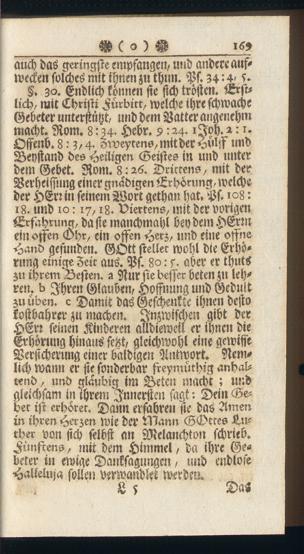 ( o ) 169
auch das geringste empfangen, und andere auf-
wecken solches mit ihnen zu thun. Ps. 34: 4, 5.
§. 30. Endlich können sie sich trösten. Erst-
lich, mit Christi Fürbitt, welche ihre schwache
Gebeter unterstützt, und dem Vatter angenehm
macht. Rom. 8: 34. Hebr. 9: 24. 1 Joh. 2: 1.
Offenb. 8: 3, 4. Zweytens, mit der Hülf und
Beystand des Heiligen Geistes in und unter
dem Gebet. Rom. 8: 26. Drittens, mit der
Verheissung einer gnädigen Erhörung, welche
der HErr in seinem Wort gethan hat. Ps. 108:
18. und 10: 17, 18. Viertens, mit der vorigen
Erfahrung, da sie manchmahl bey dem HErrn
ein offen Ohr, ein offen Hertz, und eine offne
Hand gefunden. GOtt stellet wohl die Erhö-
rung einige Zeit aus. Ps. 80: 5. aber er thuts
zu ihrem Besten. a Nur sie besser beten zu leh-
ren. b Ihren Glauben, Hoffnung und Gedult
zu üben. c Damit das Geschenkte ihnen desto
kostbahrer zu machen. Inzwischen gibt der
HErr seinen Kinderen alldieweil er ihnen die
Erhörung hinaus setzt, gleichwohl eine gewisse
Versicherung einer baldigen Antwort. Nem-
lich wann er sie sonderbar freymüthig anhal-
tend, und gläubig im Beten macht; und
gleichsam in ihrem Innersten sagt: Dein Ge-
bet ist erhöret. Dann erfahren sie das Amen
in ihren Herzen wie der Mann GOttes Lu-
ther von sich selbst an Melanchton schrieb.
Fünftens, mit dem Himmel, da ihre Ge-
beter in ewige Danksagungen, und endlose
Halleluja sollen verwandlet werden.
L 5 Das